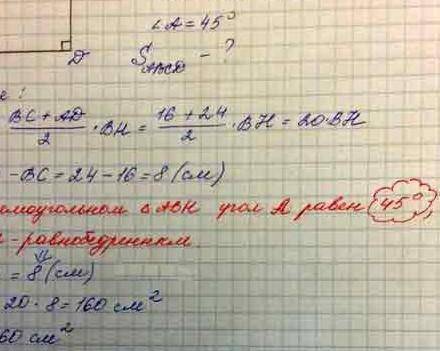 ∠A = 45°
D
S_ABCD - ?
е:
BC + AD / 2 · BH = 16 + 24 / 2 · BH = 20 · BH
- BC = 24 - 16 = 8 (см)
ямоугольном Δ ABH угол A равен 45°
- равнобедренным.
⇓
= 8 (см)
20 · 8 = 160 см²
60 см²